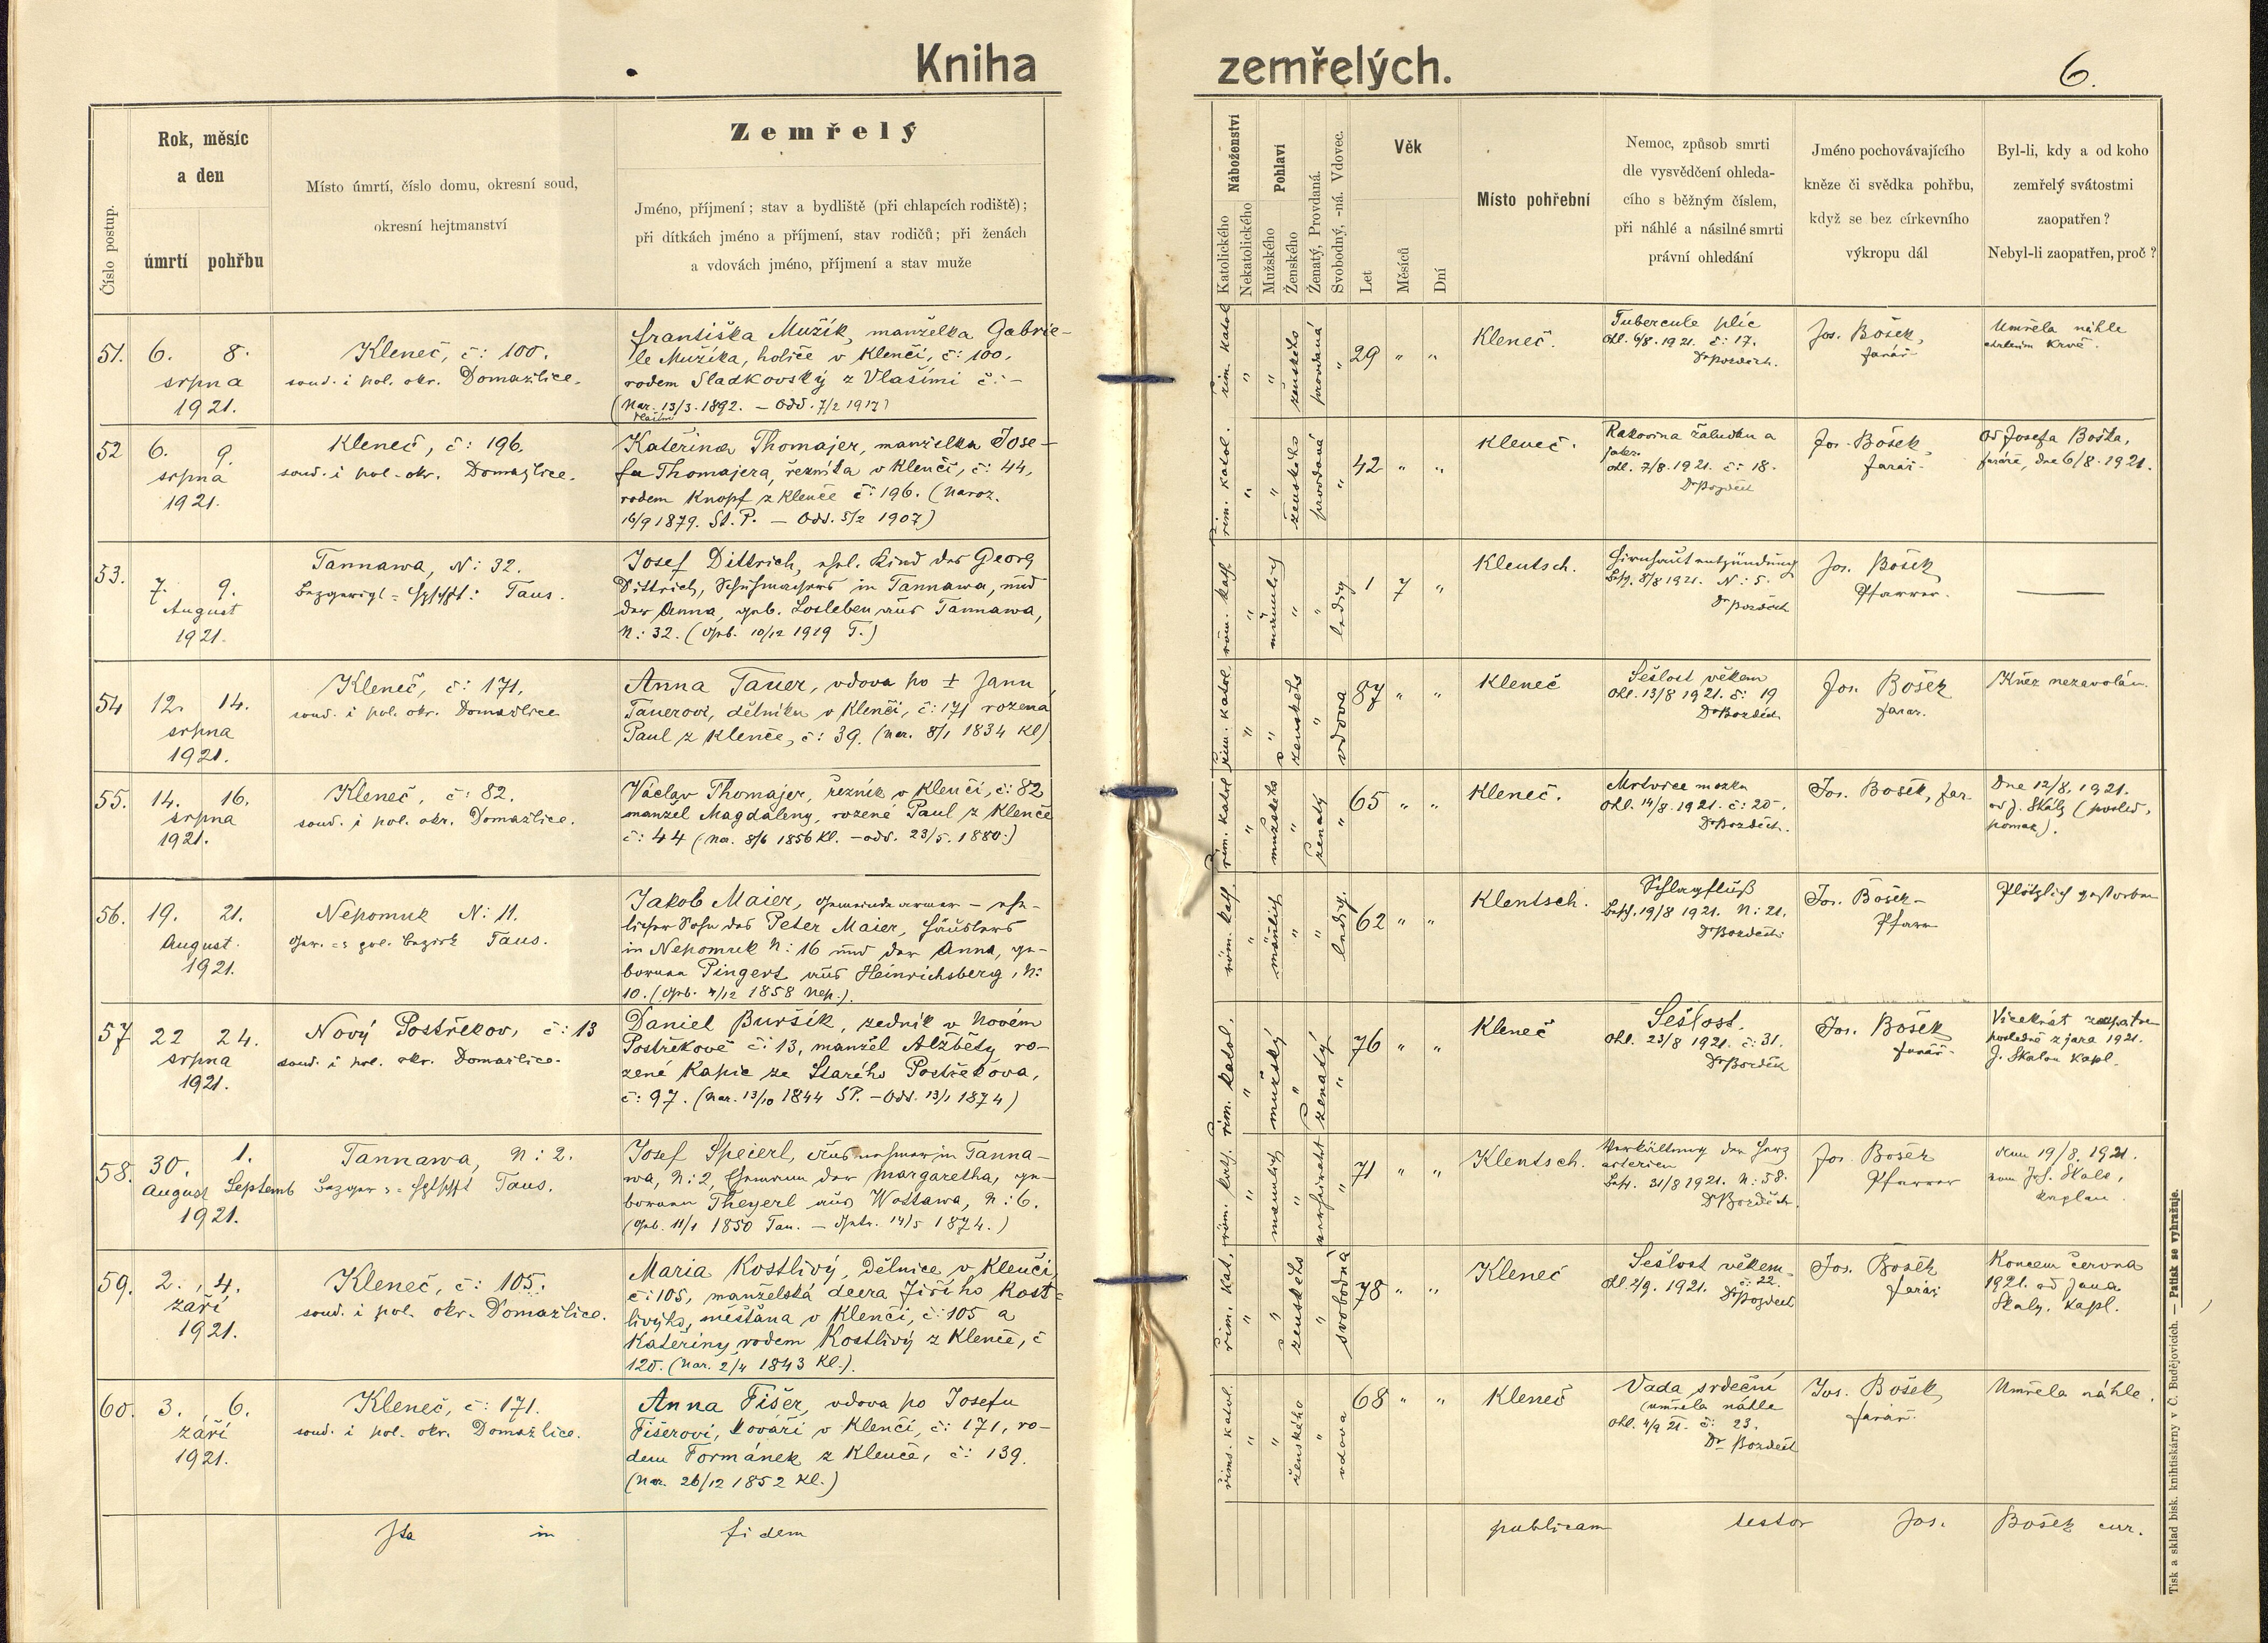 Kniha zemřelých.
6.
Číslo postup.
Rok, měsíc
a den
úmrtí
pohřbu
Místo úmrtí, číslo domu, okresní soud,
okresní hejtmanství
Zemřelý
Jméno, příjmení; stav a bydliště (při chlapcích rodiště);
při dítkách jméno a příjmení, stav rodičů; při ženách
a vdovách jméno, příjmení a stav muže
Náboženství
Katolického
Nekatolického
Pohlaví
Mužského
Ženského
Ženatý, Provdaná.
Svobodný, -ná. Vdovec.
Věk
Let
Měsíců
Dní
Místo pohřební
Nemoc, způsob smrti
dle vysvědčení ohleda-
cího s běžným číslem,
při náhlé a násilné smrti
právní ohledání
Jméno pochovávajícího
kněze či svědka pohřbu,
když se bez církevního
výkropu dál
Byl-li, kdy a od koho
zemřelý svátostmi
zaopatřen?
Nebyl-li zaopatřen, proč?
51.
6. 8.
srpna
1921.
Kleneč, č: 100.
soud. i pol. okr. Domažlice.
Františka Mužík, manželka Gabrie-
le Mužíka, holiče v Klenčí, č: 100,
rodem Sladkovský z Vlašimi č: -
(Nar. 13/3. 1892. - Odd. 7/2 1917)
Vlašim
řím. katol
"
"
ženského
provdaná
"
29 " "
Kleneč.
Tubercule plic
Ohl. 6/8. 1921. č: 17.
Dr Bozděch.
Jos. Bošek,
farář
Umřela náhle
chrlením krve.
52
6. 9.
srpna
1921.
Kleneč, č: 196.
soud. i pol. okr. Domažlice.
Kateřina Thomajer, manželka Jose-
fa Thomajera, řezníka v Klenčí, č: 44,
rodem Knopf z Klenče č: 196. (Naroz.
16/9 1879. St. P. - Odd. 5/2 1907)
řím. katol.
"
"
ženského
provdaná
"
42 " "
Kleneč.
Rakovina žaludku a
jater
Ohl. 7/8. 1921. č: 18.
Dr Bozděch
Jos. Bošek,
farář.
Od Josefa Boška,
faráře, dne 6/8. 1921.
53.
7. 9.
August
1921.
Tannawa, N: 32.
Bezgericht = Hptschft: Taus.
Josef Dittrich, ehel. Kind des Georg
Dittrich, Schuhmachers in Tannawa, und
der Anna, geb. Losleben aus Tannawa,
N: 32. (Geb. 10/12 1919 T.)
röm. kath.
"
männlich
"
"
ledig
1 7 "
Klentsch.
Hirnhautentzündung
Besch. 8/8 1921. N: 5.
Dr Bozděch
Jos. Bošek
Pfarrer.
54
12. 14.
srpna
1921.
Kleneč, č: 171.
soud. i pol. okr. Domažlice
Anna Tauer, vdova po ± Janu
Tauerovi, dělníku v Klenčí, č: 171 rozená
Paul z Klenče, č: 39. (Nar. 8/1 1834 Kl)
řím. katol
"
"
ženského
"
vdova
87 " "
Kleneč
Sešlost věkem
Ohl. 13/8 1921. č: 19
Dr Bozděch
Jos. Bošek
farář.
Kněz nezavolán.
55.
14. 16.
srpna
1921.
Kleneč, č: 82.
soud. i pol. okr. Domažlice.
Václav Thomajer, řezník v Klenčí, č: 82
manžel Magdaleny, rozené Paul z Klenče
č: 44 (Nar. 8/6 1856 Kl. - odd. 23/5. 1880.)
řím. katol
"
mužského
"
ženatý
"
65 " "
Kleneč.
Mrtvice mozku
Ohl. 14/8. 1921. č: 20.
Dr Bozděch.
Jos. Bošek, far.
Dne 12/8. 1921.
od J. Skály (posled.
pomaz).
56.
19. 21.
August.
1921.
Nepomuk N: 11.
Ger. = pol. Bezirk Taus.
Jakob Maier, Gemeindearmer - ehe-
licher Sohn des Peter Maier, Häuslers
in Nepomuk N: 16 und der Anna, ge-
borenen Pingert aus Heinrichsberg, N:
10. (Geb. 4/12 1858 Nep.).
röm. kath.
"
männlich
"
"
ledig.
62 " "
Klentsch.
Schlagfluß
Besch. 19/8 1921. N: 21.
Dr Bozděch
Jos. Bošek-
Pfarrer
Plötzlich gestorben
57
22 24.
srpna
1921.
Nový Postřekov, č: 13
soud. i pol. okr. Domažlice.
Daniel Buršík, zedník v Novém
Postřekově č: 13, manžel Alžběty ro-
zené Kapic ze Starého Postřekova,
č: 97. (Nar. 13/10 1844 SP. - Odd. 13/1 1874)
řím. katol.
"
mužský
"
ženatý
"
76 " "
Kleneč
Sešlost.
Ohl. 23/8 1921. č: 31.
Dr Bozděch
Jos. Bošek
farář.
Vícekrát zaopatřen
posledně z jara 1921.
J. Skalou kapl.
58.
30. 1.
August Septemb
1921.
Tannawa, N: 2.
Bezger = Hptschft Taus.
Josef Speierl, Ausnehmer in Tanna-
wa, N: 2, Ehemann der Margaretha, ge-
borenen Theyerl aus Wottawa, N: 6.
(Geb. 11/1 1850 Tan. - Getr. 14/5 1874.)
röm. kath.
"
männlich
"
verheiratet
"
71 " "
Klentsch.
Verkalkung der Herz
arterien
Besch. 31/8 1921. N: 58.
Dr Bozděch.
Jos. Bošek
Pfarrer
den 19/8. 1921.
vom Jos. Skala,
Kaplan.
59.
2. 4.
září
1921.
Kleneč, č: 105.
soud. i pol. okr. Domažlice.
Maria Kostlivý, Dělnice v Klenčí,
č: 105, manželská dcera Jiřího Kost-
livýho, měšťana v Klenčí, č: 105 a
Kateřiny rodem Kostlivý z Klenče, č
120. (Nar. 2/4 1843 Kl.).
řím. kat.
"
"
ženského
"
svobodná
78 " "
Kleneč
Sešlost věkem
č: 22.
Ohl. 2/9. 1921. Dr Bozděch
Jos. Bošek
farář
Koncem června
1921. od Jana
Skaly. kapl.
60.
3. 6.
září
1921.
Kleneč, č: 171.
soud. i pol. okr. Domažlice.
Anna Fišer, vdova po Josefu
Fišerovi, kováři v Klenčí, č: 171, ro-
dem Formánek z Klenče, č: 139.
(Nar. 26/12 1852 Kl.)
říms. katol.
"
"
ženského
"
vdova
68 " "
Kleneč
Vada srdeční
(umřela náhle
Ohl. 4/9 21. č: 23.
Dr Bozděch
Jos. Bošek,
farář.
Umřela náhle.
Ita in fidem publicam testor Jos. Bošek cur.
Tisk a sklad bisk. knihtiskárny v Č. Budějovicích. — Patisk se vyhražuje.